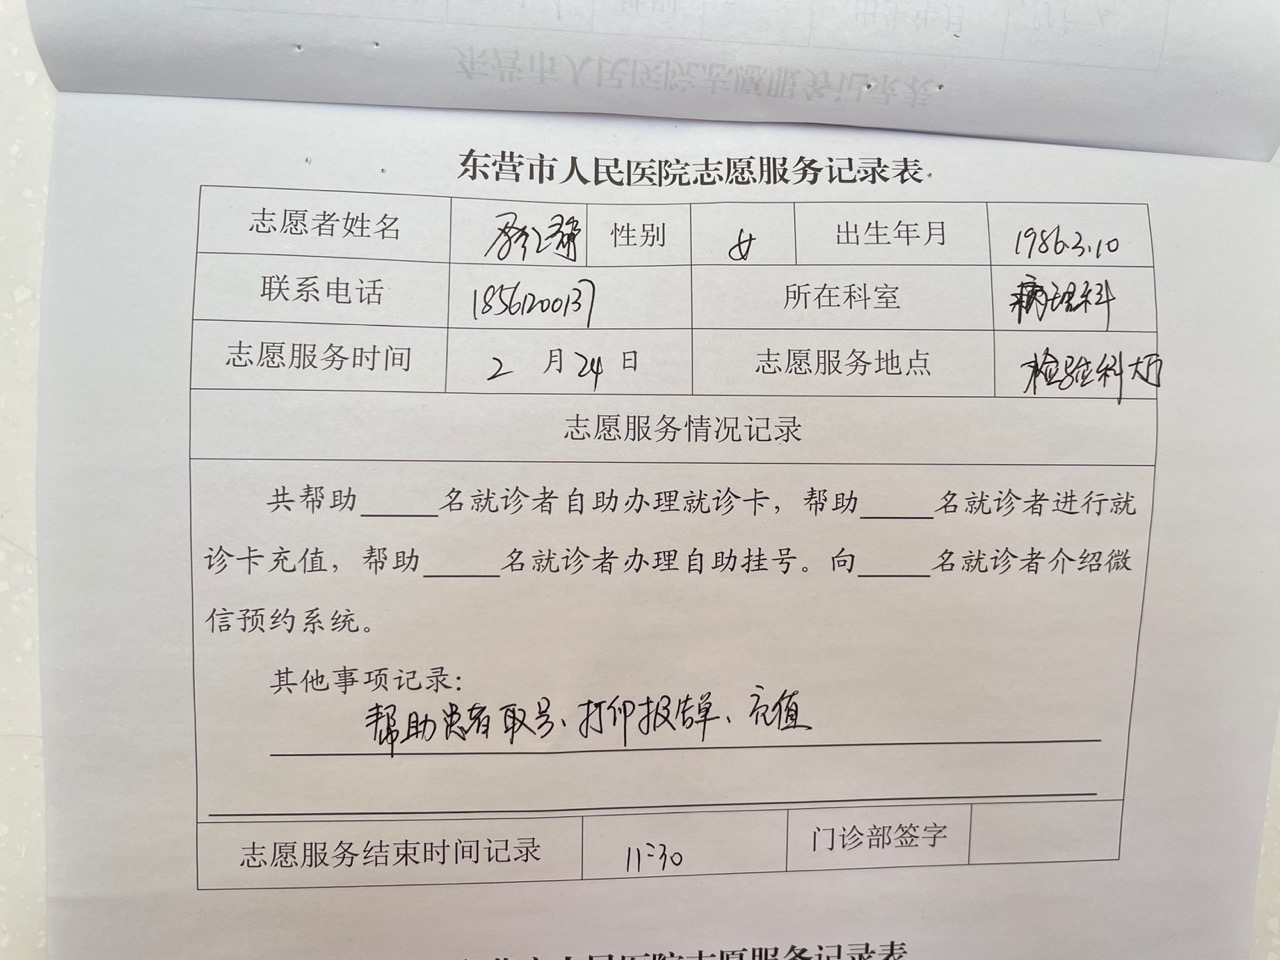 东营市人民医院志愿服务记录表
志愿者姓名 性别 女 出生年月 1986.3.10
联系电话 所在科室 病理科
志愿服务时间 2 月 24 日 志愿服务地点 检验科大厅
志愿服务情况记录
共帮助_____名就诊者自助办理就诊卡，帮助_____名就诊者进行就
诊卡充值，帮助_____名就诊者办理自助挂号。向_____名就诊者介绍微
信预约系统。
其他事项记录：
帮助患者取号、打印报告单、充值
志愿服务结束时间记录 11:30 门诊部签字
东营市人民医院志愿服务记录表